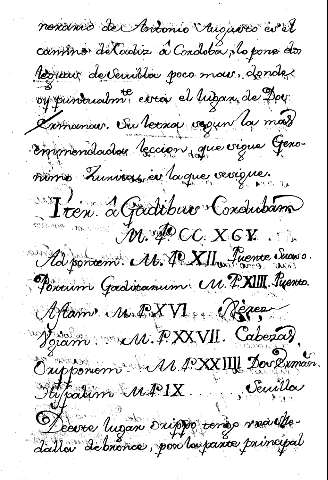 nerario de Antonio Augusto es el
camino de Cadiz â Cordoba, lo pone dos
leguas de Sevilla poco mas, donde
oy puntualmte. està el lugar de Dos
Ermanas. Su letra segun la mas
emmendada leccion, que sigue Gero-
nimo Zurita, es la que se sigue.
Iter. â Gadibus Cordubam
M. P CC. XCV.
Ad pontem. M. P XII. Puente Suaso.
Portum Gaditanum M. P XIIII. Puerto.
Astam. M. P XVI. Xerez
Ugiam. M. P XXVII. Cabezas
Oripponem. M. P XXIIII Dos Erman.
Hispalim M. P IX. Sevilla
De este lugar Orippo tengo vna Me-
dalla de bronce, por la parte principal